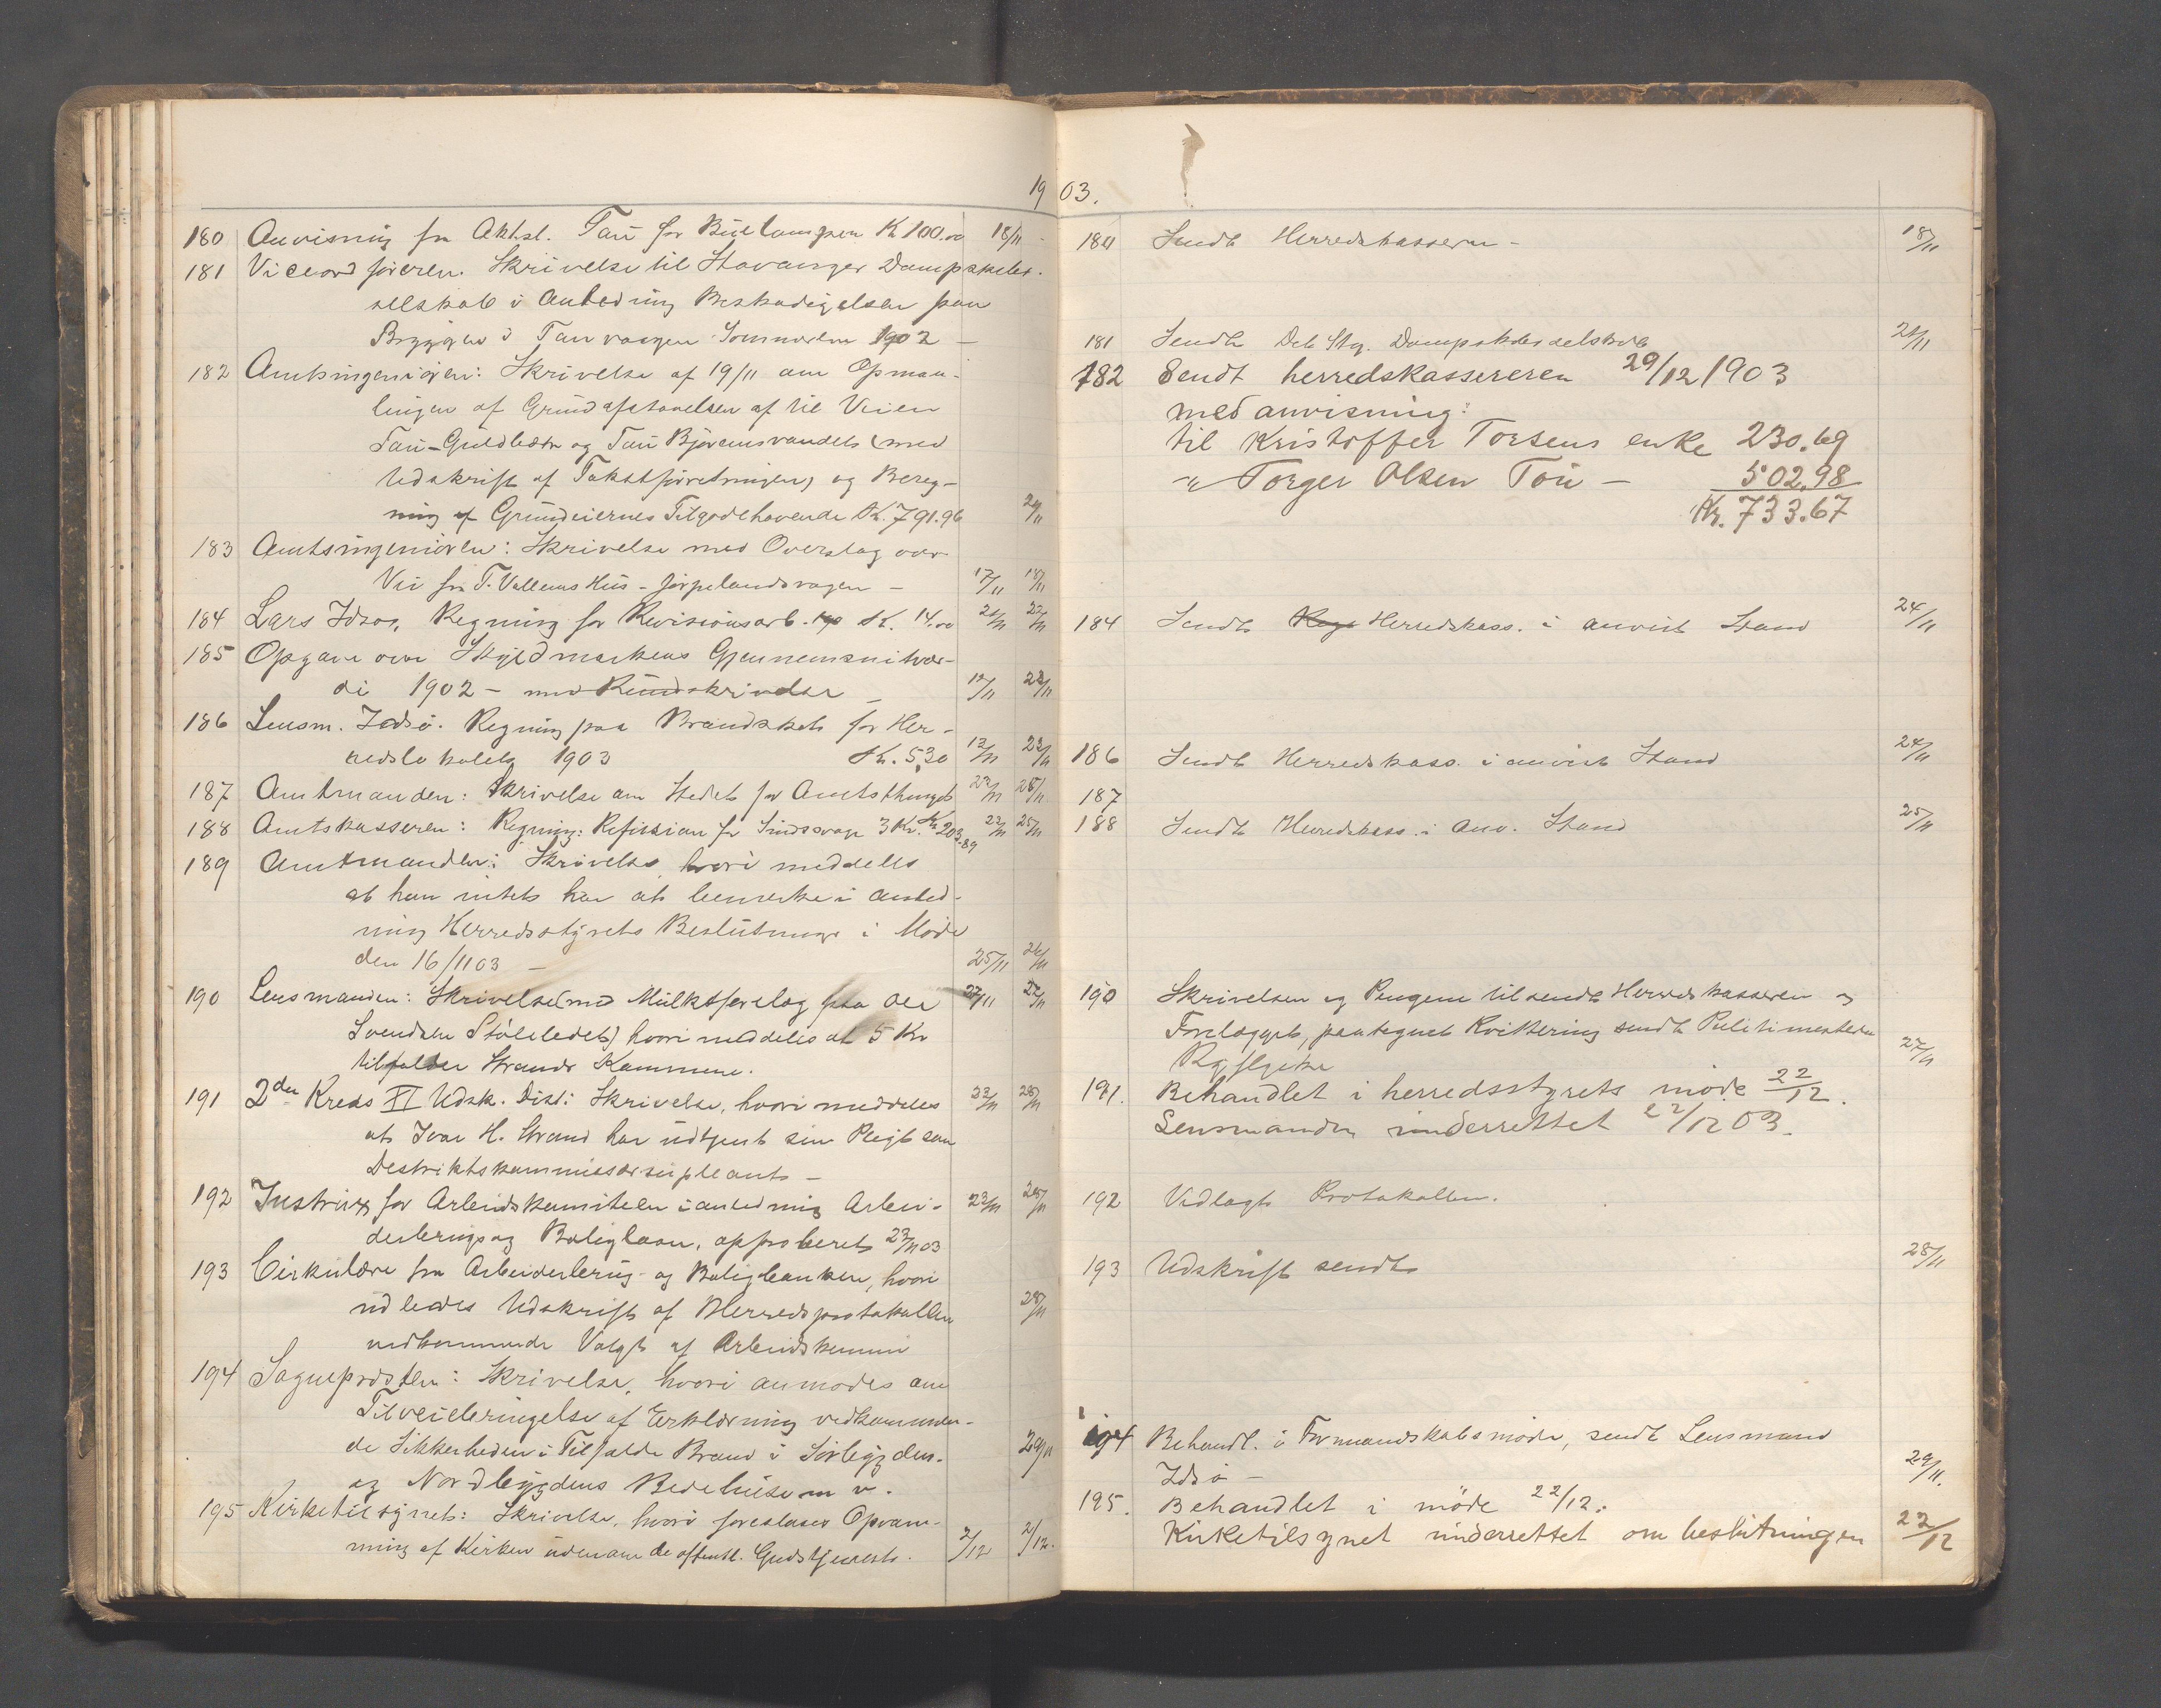 1903.
180 Anvisning fra Aktsl. Tau for Buelampen Kr 100.00 18/11 -
181 Viceordføreren. Skrivelse til Stavanger Dampskibs-
selskab i Anledning Beskadigelsen paa
Bryggen i Tauvaagen Sommeren 1902 -
182 Amtsingeniøren: Skrivelse af 19/11 om Opmaa-
lingen af Grundafstaaelsen af til Veien
Tau - og Tau Bjørheimsvandets (med
Udskrift af Takstforretningen) og Bereg-
ning af Grundeiernes Tilgodehavende Kr. 791.96
183 Amtsingeniøren: Skrivelse med Overslag over
Vei fra T. Hus - Jørpelandsvagen - 17/11 18/11
184 Lars Idsø, Regning for Revisionsarb. Kr. 14.00 21/11 22/11
185 Opgave over Skyldmarkens Gjennemsnitvær-
di 1902 - med Rundskrivelse -
186 Lensm. Idsø. Regning paa Brandskat for Her-
redslokalet 1903 Kr. 5,30 12/11 23/11
187 Amtmanden: Skrivelse om Stedet for Amtsthinget 23/11 25/11
188 Amtskasseren: Regning: Refusion for Sindssvage 3 Kv. Kr 203.89 23/11 25/11
189 Amtmanden: Skrivelse, hvori meddeles
at han intet har at bemerke i anled-
ning Herredsstyrets Beslutninger i Møde
den 16/11 03 - 25/11 26/11
190 Lensmanden: Skrivelse (med Mulktforelæg fra Ole
Svendsen Støleledet) hvori meddeles at 5 Kr
tilfalder Strands Kommune. 27/11 27/11
191 2den Kreds XI Udsk. Dist: Skrivelse, hvori meddeles
at Ivar H. Strand har udtjent sin Pligt som
Destriktskommissærsupleant - 23/11 28/11
192 Instrux for Arbeidskomiteen i anledning Arbei-
derbrugs og Boliglaan, approberet 23/11 03 23/11 28/11
193 Cirkulære fra Arbeiderbrug- og Boligbanken, hvori
udbedes Udskrift af Herredsprotokollen
vedkommende Valgt af Arbeidskommi 28/11
194 Sogneprosten: Skrivelse, hvori anmodes om
Tilveiebringelse af Erklærning vedkommen-
de Sikkerheden i Tilfælde Brand i Sørbygden-
og Nordbygdens Bedehuse m v. 29/11
195 Kirketilsynet: Skrivelse, hvori foreslaaes Opvarm-
ning af Kirken udenom de offentl. Gudstjeneste. 2/12 2/12.
180 Sendt Herredskasseren - 18/11
181 Sendt Det Stg. Dampskibsselskab 21/11
182 Sendt herredskassereren 29/12 1903
med anvisning:
til Kristoffer Torsens enke 230.69
" Torger Olsen Tou - 502,98
Kr. 733.67
184 Sendt Herredskass. i anvist Stand 24/11
186 Sendt Herredskass. i anvist Stand 24/11
187
188 Sendt Herredskass. i anv. Stand 25/11
190 Skrivelsen og Pengene tilsendt Herredskasseren og
Forelægget, paategnet Kvittering sendt Politimesteren
Ryfylke 27/11
191. Behandlet i herredsstyrets møde 22/12.
Lensmanden underrettet 22/12 03.
192 Vedlagt Protokollen.
193 Udskrift sendt 28/11
194 Behandl. i Formandskabsmøde, sendt Lensmand
Idsø - 29/11.
195. Behandlet i møde 22/12.
Kirketilsynet underrettet om beslutningen 22/12